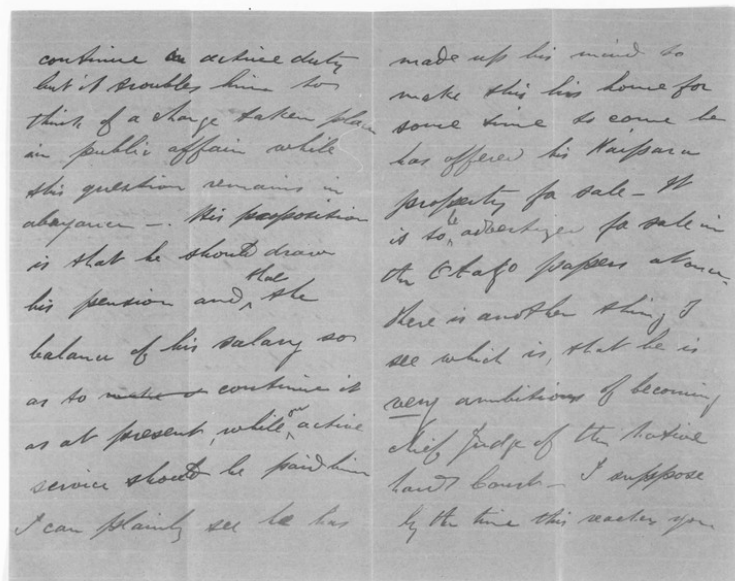 continue on active duty
but it troubles him to
think of a change taken place
in public affair while
this question remains in
abeyance —. His proposition
is that he should draw
his pension and that the
balance of his salary so
as to make a continue it
as at present, while on active
service should be paid him
I can plainly see he has
made up his mind to
make this his home for
some time to come he
has offered his Kaipara
property for sale — It
is to be advertized for sale in
the Otago papers at once.
There is another thing I
see which is, that he is
very ambitious of becoming
chief Judge of the Native
Lands Court — I suppose
by the time this reaches you